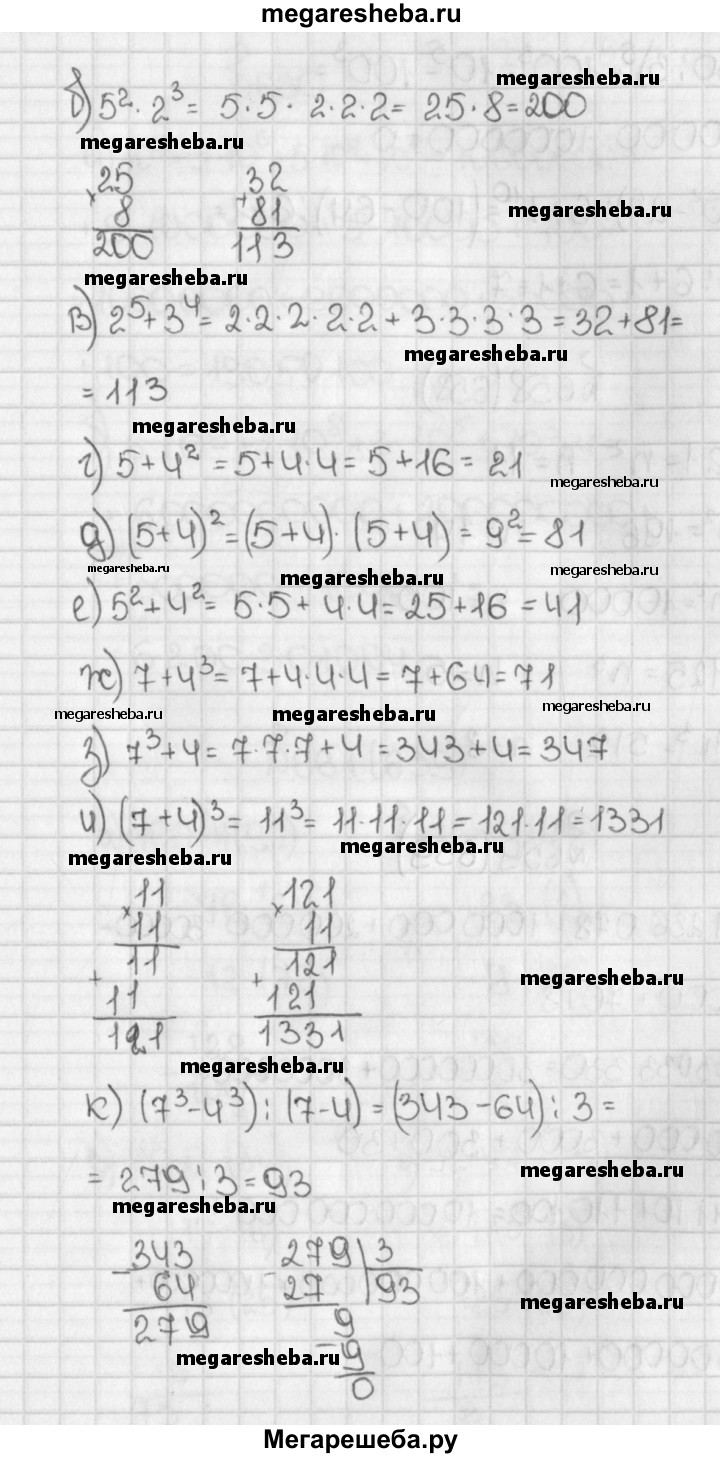 megaresheba.ru
megaresheba.ru
б) 5² · 2³ = 5·5· 2·2·2 = 25·8 = 200
megaresheba.ru
× 25 + 32
8 81 megaresheba.ru
200 113
megaresheba.ru
в) 2⁵ + 3⁴ = 2·2·2·2·2 + 3·3·3·3 = 32 + 81 =
megaresheba.ru
= 113
megaresheba.ru
г) 5 + 4² = 5 + 4·4 = 5 + 16 = 21
megaresheba.ru
д) (5+4)² = (5+4)·(5+4) = 9² = 81
megaresheba.ru megaresheba.ru megaresheba.ru
е) 5² + 4² = 5·5 + 4·4 = 25 + 16 = 41
ж) 7 + 4³ = 7 + 4·4·4 = 7 + 64 = 71
megaresheba.ru megaresheba.ru megaresheba.ru
з) 7³ + 4 = 7·7·7 + 4 = 343 + 4 = 347
и) (7+4)³ = 11³ = 11·11·11 = 121·11 = 1331
megaresheba.ru megaresheba.ru
× 11 × 121
11 11
+ 11 + 121
11 121 megaresheba.ru
121 1331
megaresheba.ru
к) (7³ - 4³) : (7-4) = (343 - 64) : 3 =
= 279 : 3 = 93 megaresheba.ru
megaresheba.ru
- 343 - 279 | 3
64 27 | 93
279 9 megaresheba.ru
megaresheba.ru - 9
0
Мегарешеба.ру